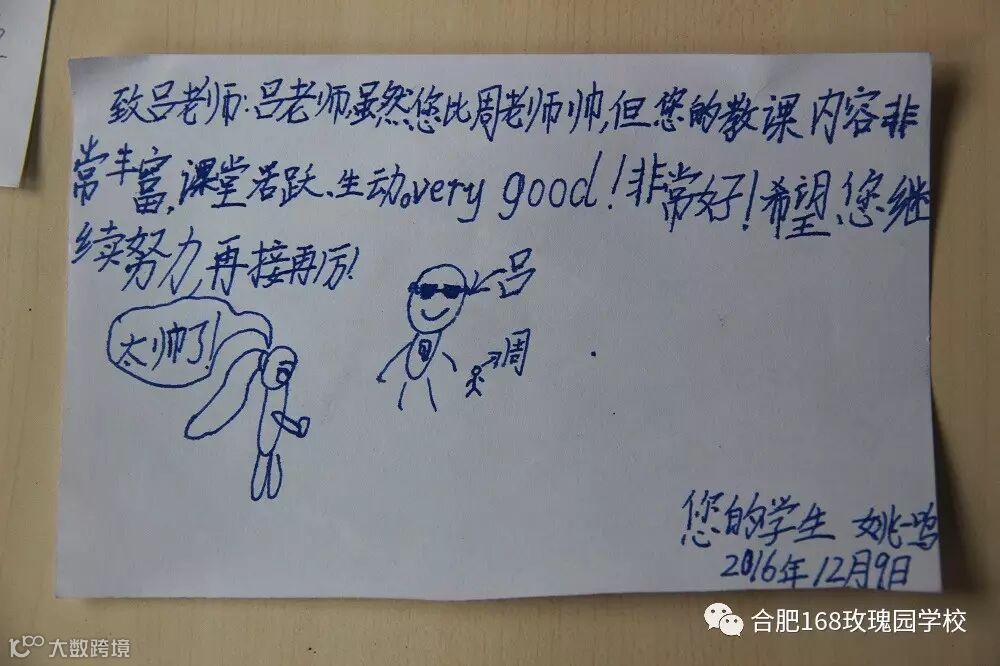 致吕老师:吕老师虽然您比周老师帅,但您的教课内容非
常丰富,课堂若跃、生动。very good!非常好!希望您继
续努力,再接再厉!
吕
太帅了!
周
您的学生 姚一鸣
2016年12月9日
合肥168玫瑰园学校
大数跨境